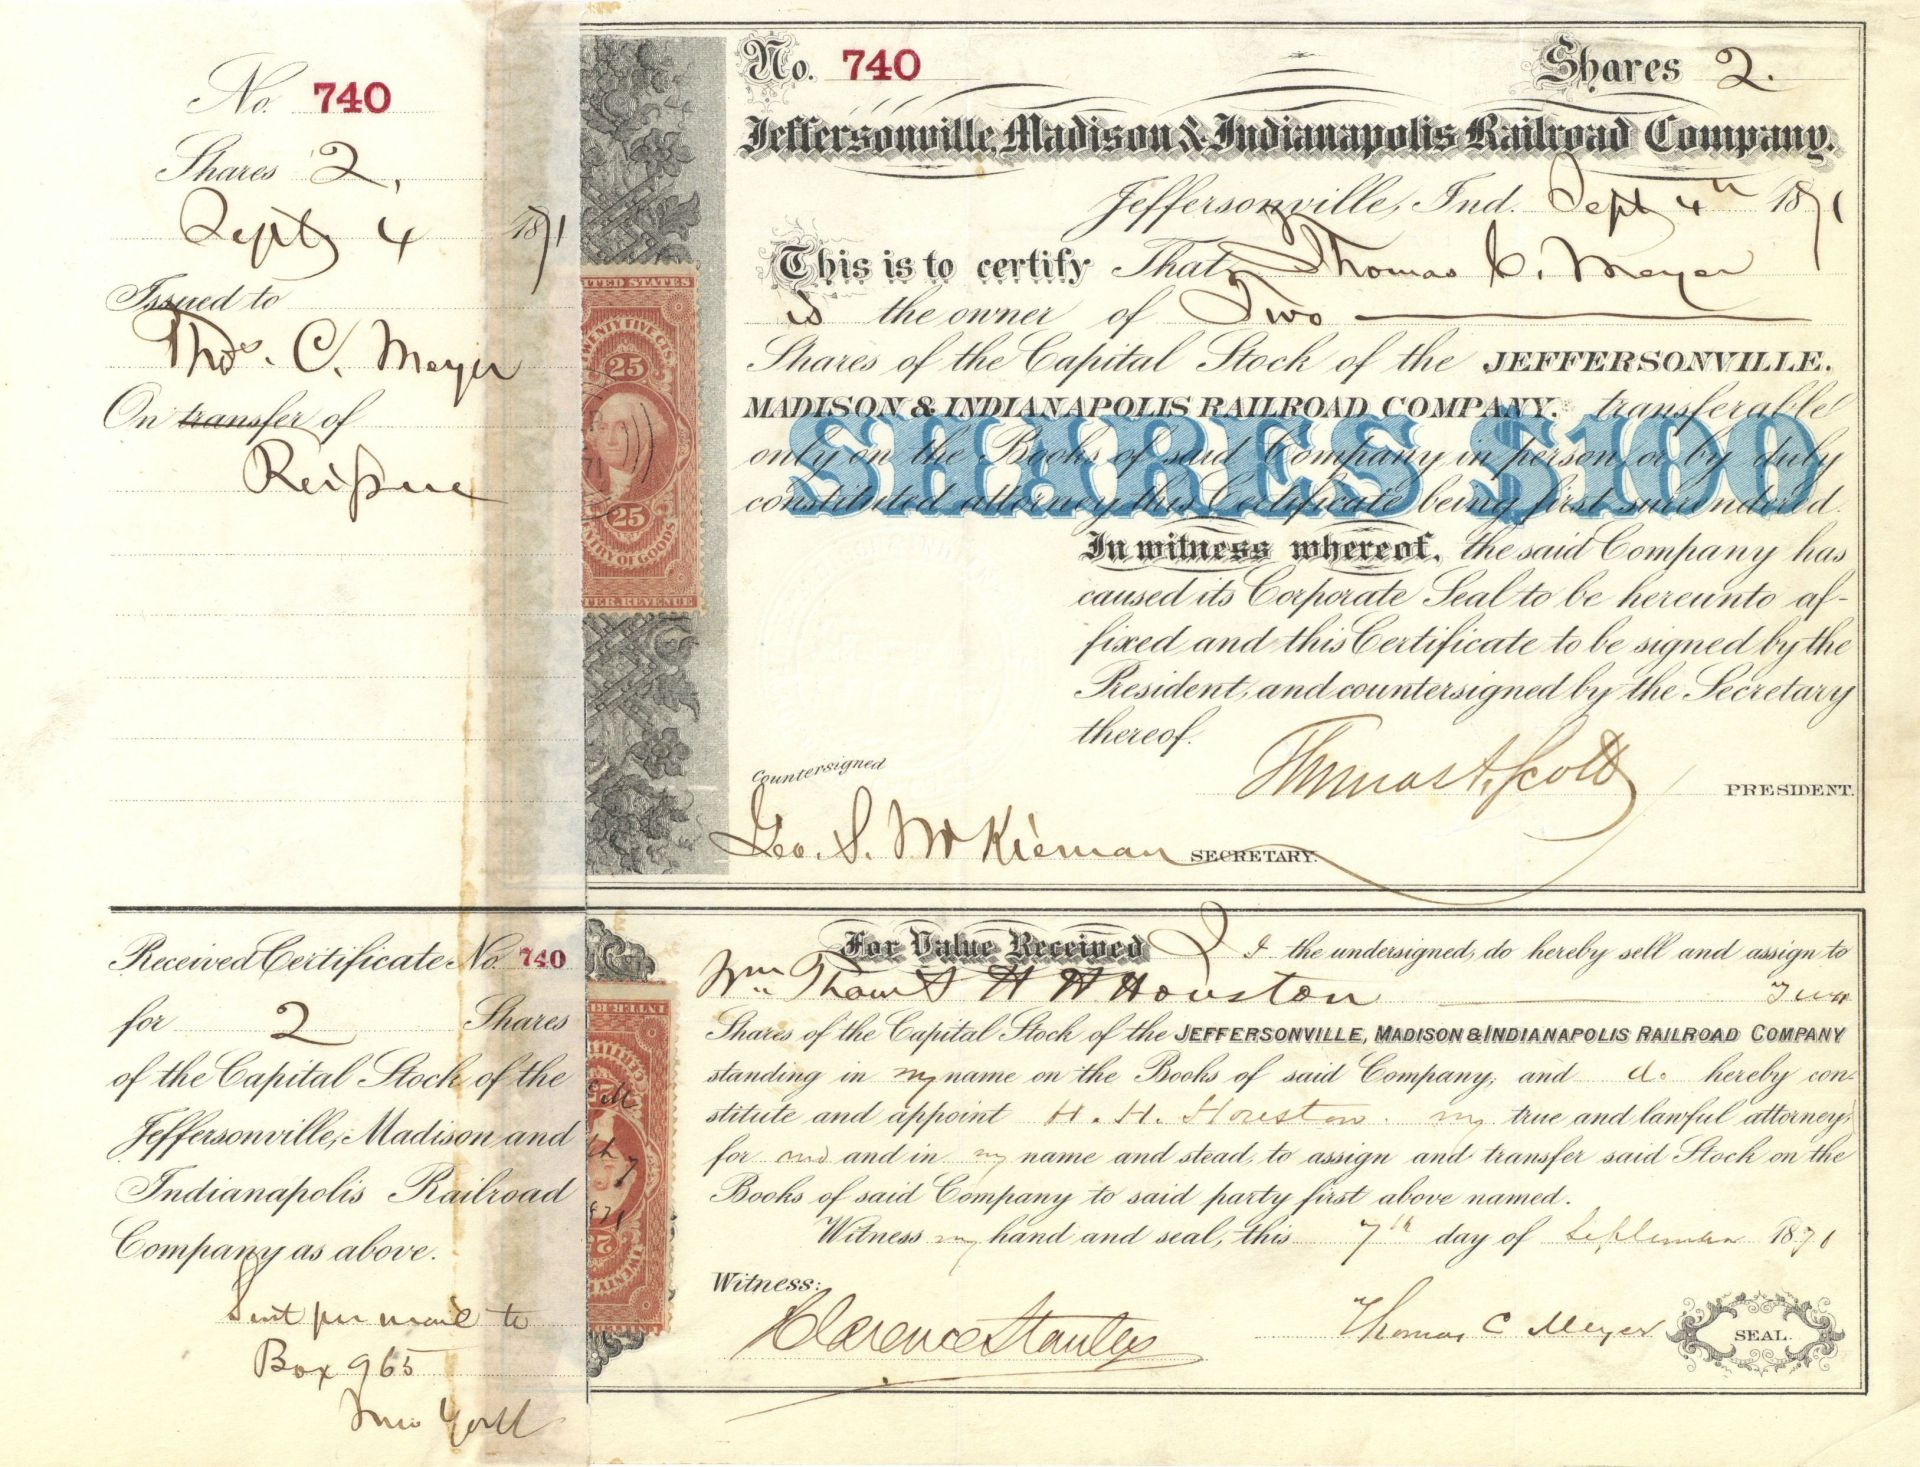 No. 740
Shares 2,
Sept 4 1871
Issued to
Thos. C. Meyer
On transfer of
Reissue
Received Certificate No. 740
for 2 Shares
of the Capital Stock of the
Jeffersonville, Madison and
Indianapolis Railroad
Company as above.
Sent per mail to
Box 965
New York
No. 740 Shares 2.
Jeffersonville, Madison & Indianapolis Railroad Company.
Jeffersonville, Ind. Sept 4th 1871
This is to certify That Thomas C. Meyer
is the owner of Two
Shares of the Capital Stock of the JEFFERSONVILLE,
MADISON & INDIANAPOLIS RAILROAD COMPANY. transferable
only on the Books of said Company in person or by duly
constituted attorney this Certificate being first surrendered.
SHARES $100
In witness whereof, the said Company has
caused its Corporate Seal to be hereunto af-
fixed and this Certificate to be signed by the
President, and countersigned by the Secretary
thereof.
Thomas A. Scott PRESIDENT.
Countersigned
Geo. S. McKiernan SECRETARY.
ITED STATES
TWENTY FIVE CTS.
25
71
25
NTRY OF GOODS
TER. REVENUE
For Value Received I the undersigned, do hereby sell and assign to
Wm Thaw & H H Houston Two
Shares of the Capital Stock of the JEFFERSONVILLE, MADISON & INDIANAPOLIS RAILROAD COMPANY
standing in my name on the Books of said Company, and do hereby con-
stitute and appoint H. H. Houston my true and lawful attorney,
for me and in my name and stead, to assign and transfer said Stock on the
Books of said Company to said party first above named.
Witness my hand and seal, this 7th day of September 1871
Witness:
Clarence Stanley
Thomas C Meyer SEAL.